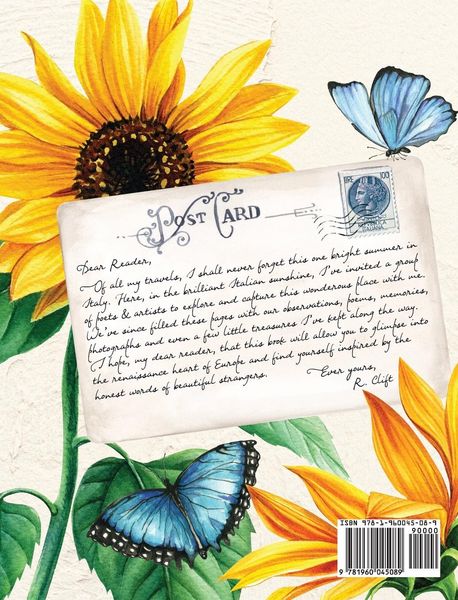 POST CARD
LIRE 100
Dear Reader,
Of all my travels, I shall never forget this one bright summer in
Italy. Here, in the brilliant Italian sunshine, I've invited a group
of poets & artists to explore and capture this wonderous place with me.
We've since filled these pages with our observations, poems, memories,
photographs and even a few little treasures I've kept along the way.
I hope, my dear reader, that this book will allow you to glimpse into
the renaissance heart of Europe and find yourself inspired by the
honest words of beautiful strangers.
Ever yours,
R. Clift
ISBN 978-1-960045-08-9
90000
9 781960 045089